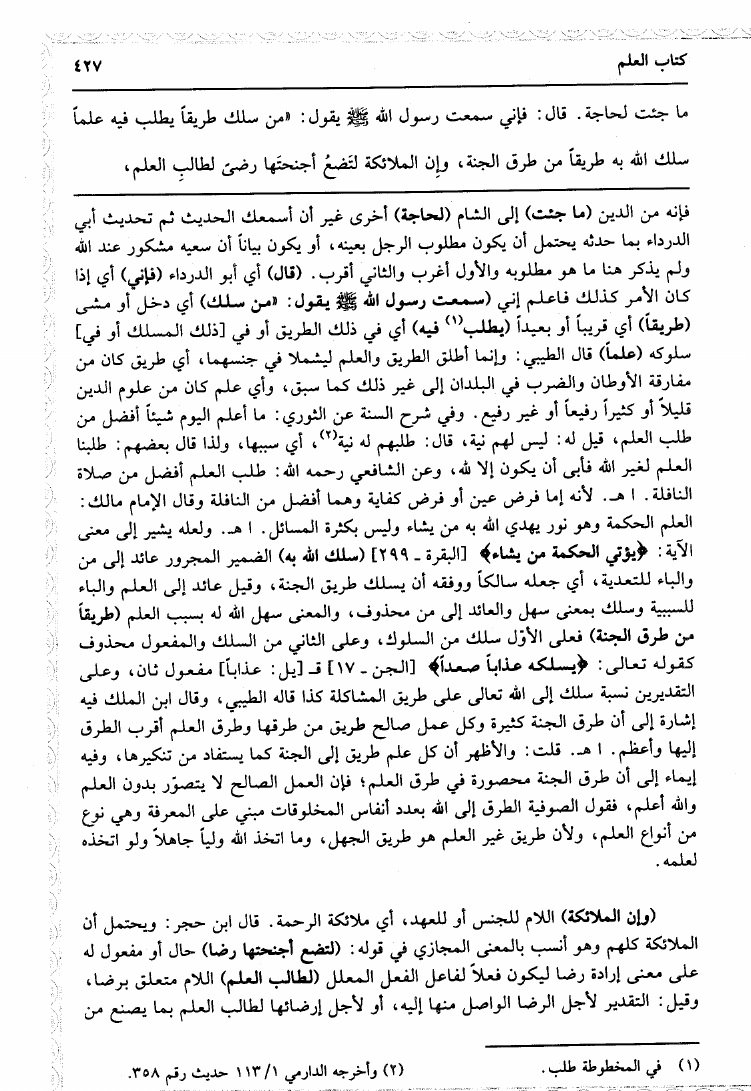 كتاب العلم ٤٢٧
ما جئت لحاجة. قال: فإني سمعت رسول الله ﷺ يقول: «من سلك طريقاً يطلب فيه علماً
سلك الله به طريقاً من طرق الجنة، وإن الملائكة لتَضعُ أجنحتَها رضىً لطالبِ العلم،
فإنه من الدين (ما جئت) إلى الشام (لحاجة) أخرى غير أن أسمعك الحديث ثم تحديث أبي
الدرداء بما حدثه يحتمل أن يكون مطلوب الرجل بعينه، أو يكون بياناً أن سعيه مشكور عند الله
ولم يذكر هنا ما هو مطلوبه والأول أغرب والثاني أقرب. (قال) أي أبو الدرداء (فإني) أي إذا
كان الأمر كذلك فاعلم إني (سمعت رسول الله ﷺ يقول: «من سلك) أي دخل أو مشى
(طريقاً) أي قريباً أو بعيداً (يطلب(١) فيه) أي في ذلك الطريق أو في [ذلك المسلك أو في]
سلوكه (علماً) قال الطيبي: وإنما أطلق الطريق والعلم ليشملا في جنسهما، أي طريق كان من
مفارقة الأوطان والضرب في البلدان إلى غير ذلك كما سبق، وأي علم كان من علوم الدين
قليلاً أو كثيراً رفيعاً أو غير رفيع. وفي شرح السنة عن الثوري: ما أعلم اليوم شيئاً أفضل من
طلب العلم، قيل له: ليس لهم نية، قال: طلبهم له نية(٢)، أي سببها، ولذا قال بعضهم: طلبنا
العلم لغير الله فأبى أن يكون إلا لله، وعن الشافعي رحمه الله: طلب العلم أفضل من صلاة
النافلة. ا هـ. لأنه إما فرض عين أو فرض كفاية وهما أفضل من النافلة وقال الإمام مالك:
العلم الحكمة وهو نور يهدي الله به من يشاء وليس بكثرة المسائل. ا هـ. ولعله يشير إلى معنى
الآية: ﴿يؤتي الحكمة من يشاء﴾ [البقرة ـ ٢٩٩] (سلك الله به) الضمير المجرور عائد إلى من
والباء للتعدية، أي جعله سالكاً ووفقه أن يسلك طريق الجنة، وقيل عائد إلى العلم والباء
للسببية وسلك بمعنى سهل والعائد إلى من محذوف، والمعنى سهل الله له بسبب العلم (طريقاً
من طرق الجنة) فعلى الأوّل سلك من السلوك، وعلى الثاني من السلك والمفعول محذوف
كقوله تعالى: ﴿يسلكه عذاباً صعداً﴾ [الجن ـ ١٧] قـ [يل: عذاباً] مفعول ثان، وعلى
التقديرين نسبة سلك إلى الله تعالى على طريق المشاكلة كذا قاله الطيبي، وقال ابن الملك فيه
إشارة إلى أن طرق الجنة كثيرة وكل عمل صالح طريق من طرقها وطرق العلم أقرب الطرق
إليها وأعظم. ا هـ. قلت: والأظهر أن كل علم طريق إلى الجنة كما يستفاد من تنكيرها، وفيه
إيماء إلى أن طرق الجنة محصورة في طرق العلم؛ فإن العمل الصالح لا يتصوّر بدون العلم
والله أعلم، فقول الصوفية الطرق إلى الله بعدد أنفاس المخلوقات مبني على المعرفة وهي نوع
من أنواع العلم، ولأن طريق غير العلم هو طريق الجهل، وما اتخذ الله ولياً جاهلاً ولو اتخذه
لعلمه.
(وإن الملائكة) اللام للجنس أو للعهد، أي ملائكة الرحمة. قال ابن حجر: ويحتمل أن
الملائكة كلهم وهو أنسب بالمعنى المجازي في قوله: (لتضع أجنحتها رضا) حال أو مفعول له
على معنى إرادة رضا ليكون فعلاً لفاعل الفعل المعلل (لطالب العلم) اللام متعلق برضا،
وقيل: التقدير لأجل الرضا الواصل منها إليه، أو لأجل إرضائها لطالب العلم بما يصنع من
(١) في المخطوطة طلب. (٢) وأخرجه الدارمي ١/ ١١٣ حديث رقم ٣٥٨.